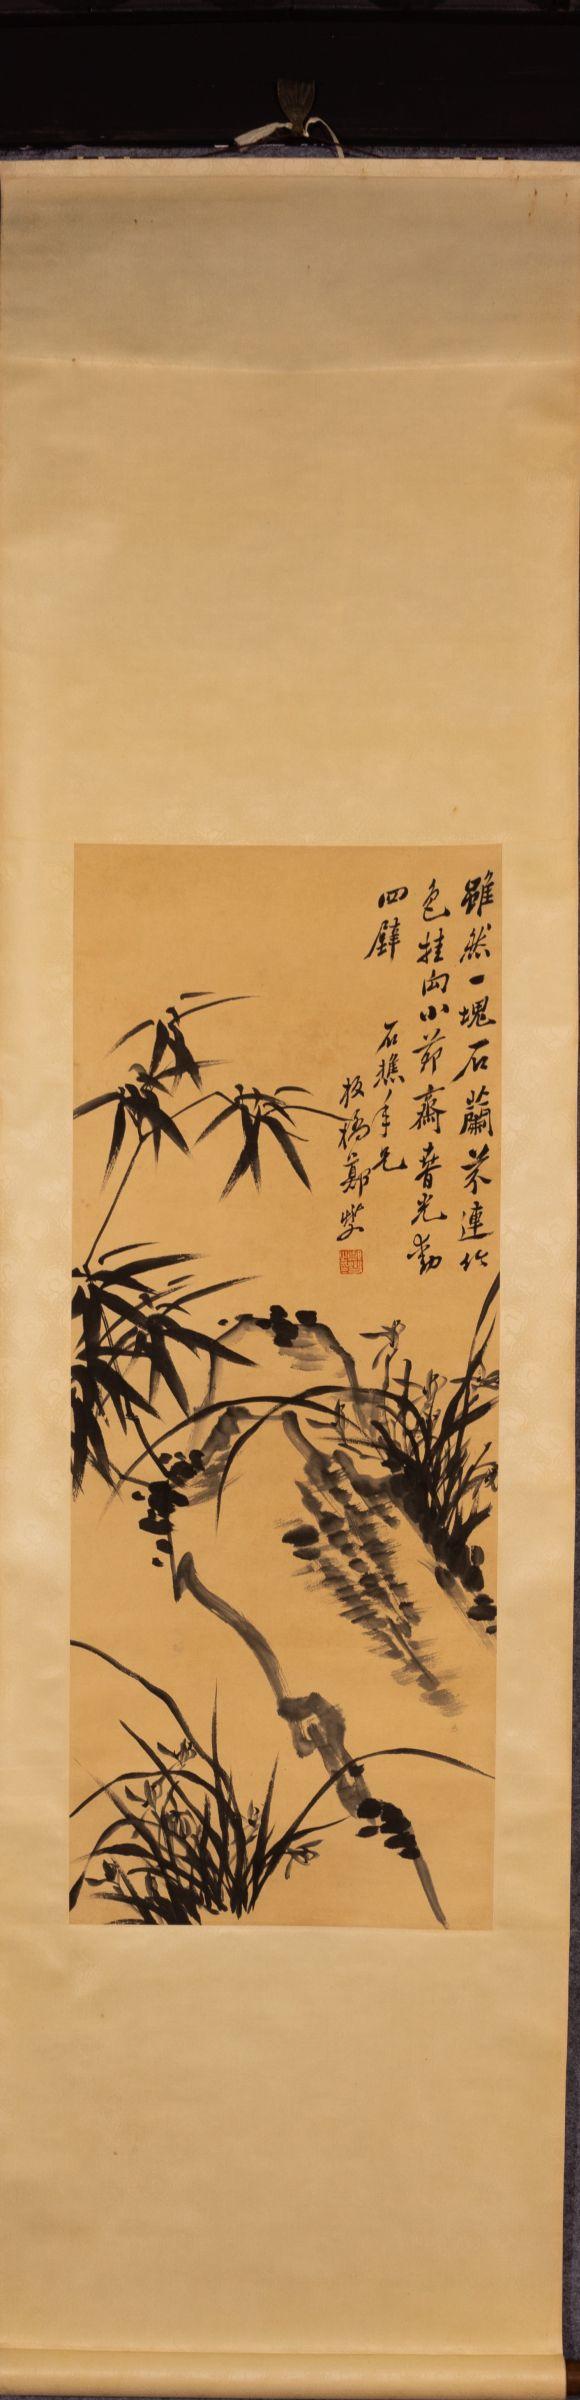 雖然一塊石蘭芬連竹
色挂向小茆齋春光動
四壁
石蕉年兄
板橋鄭燮